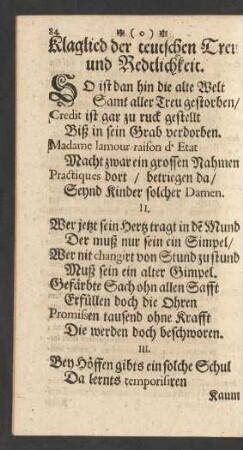 84. ✻ ( o ) ✻
Klaglied der teutschen Treu
und Redtlichkeit.
SO ist dan hin die alte Welt
Samt aller Treu gestorben/
Credit ist gar zu ruck gestellt
Biß in sein Grab verdorben.
Madame lamour raison d' Etat
Macht zwar ein grossen Nahmen
Practiques dort / betriegen da/
Seynd Kinder solcher Damen.
II.
Wer jetzt sein Hertz tragt in dẽ Mund
Der muß nur sein ein Simpel/
Wer nit changirt von Stund zu stund
Muß sein ein alter Gimpel.
Gefärbte Sach ohn allen Safft
Erfüllen doch die Ohren
Promissen tausend ohne Krafft
Die werden doch beschworen.
III.
Bey Höffen gibts ein solche Schul
Da lernts temporisiren
Kaum